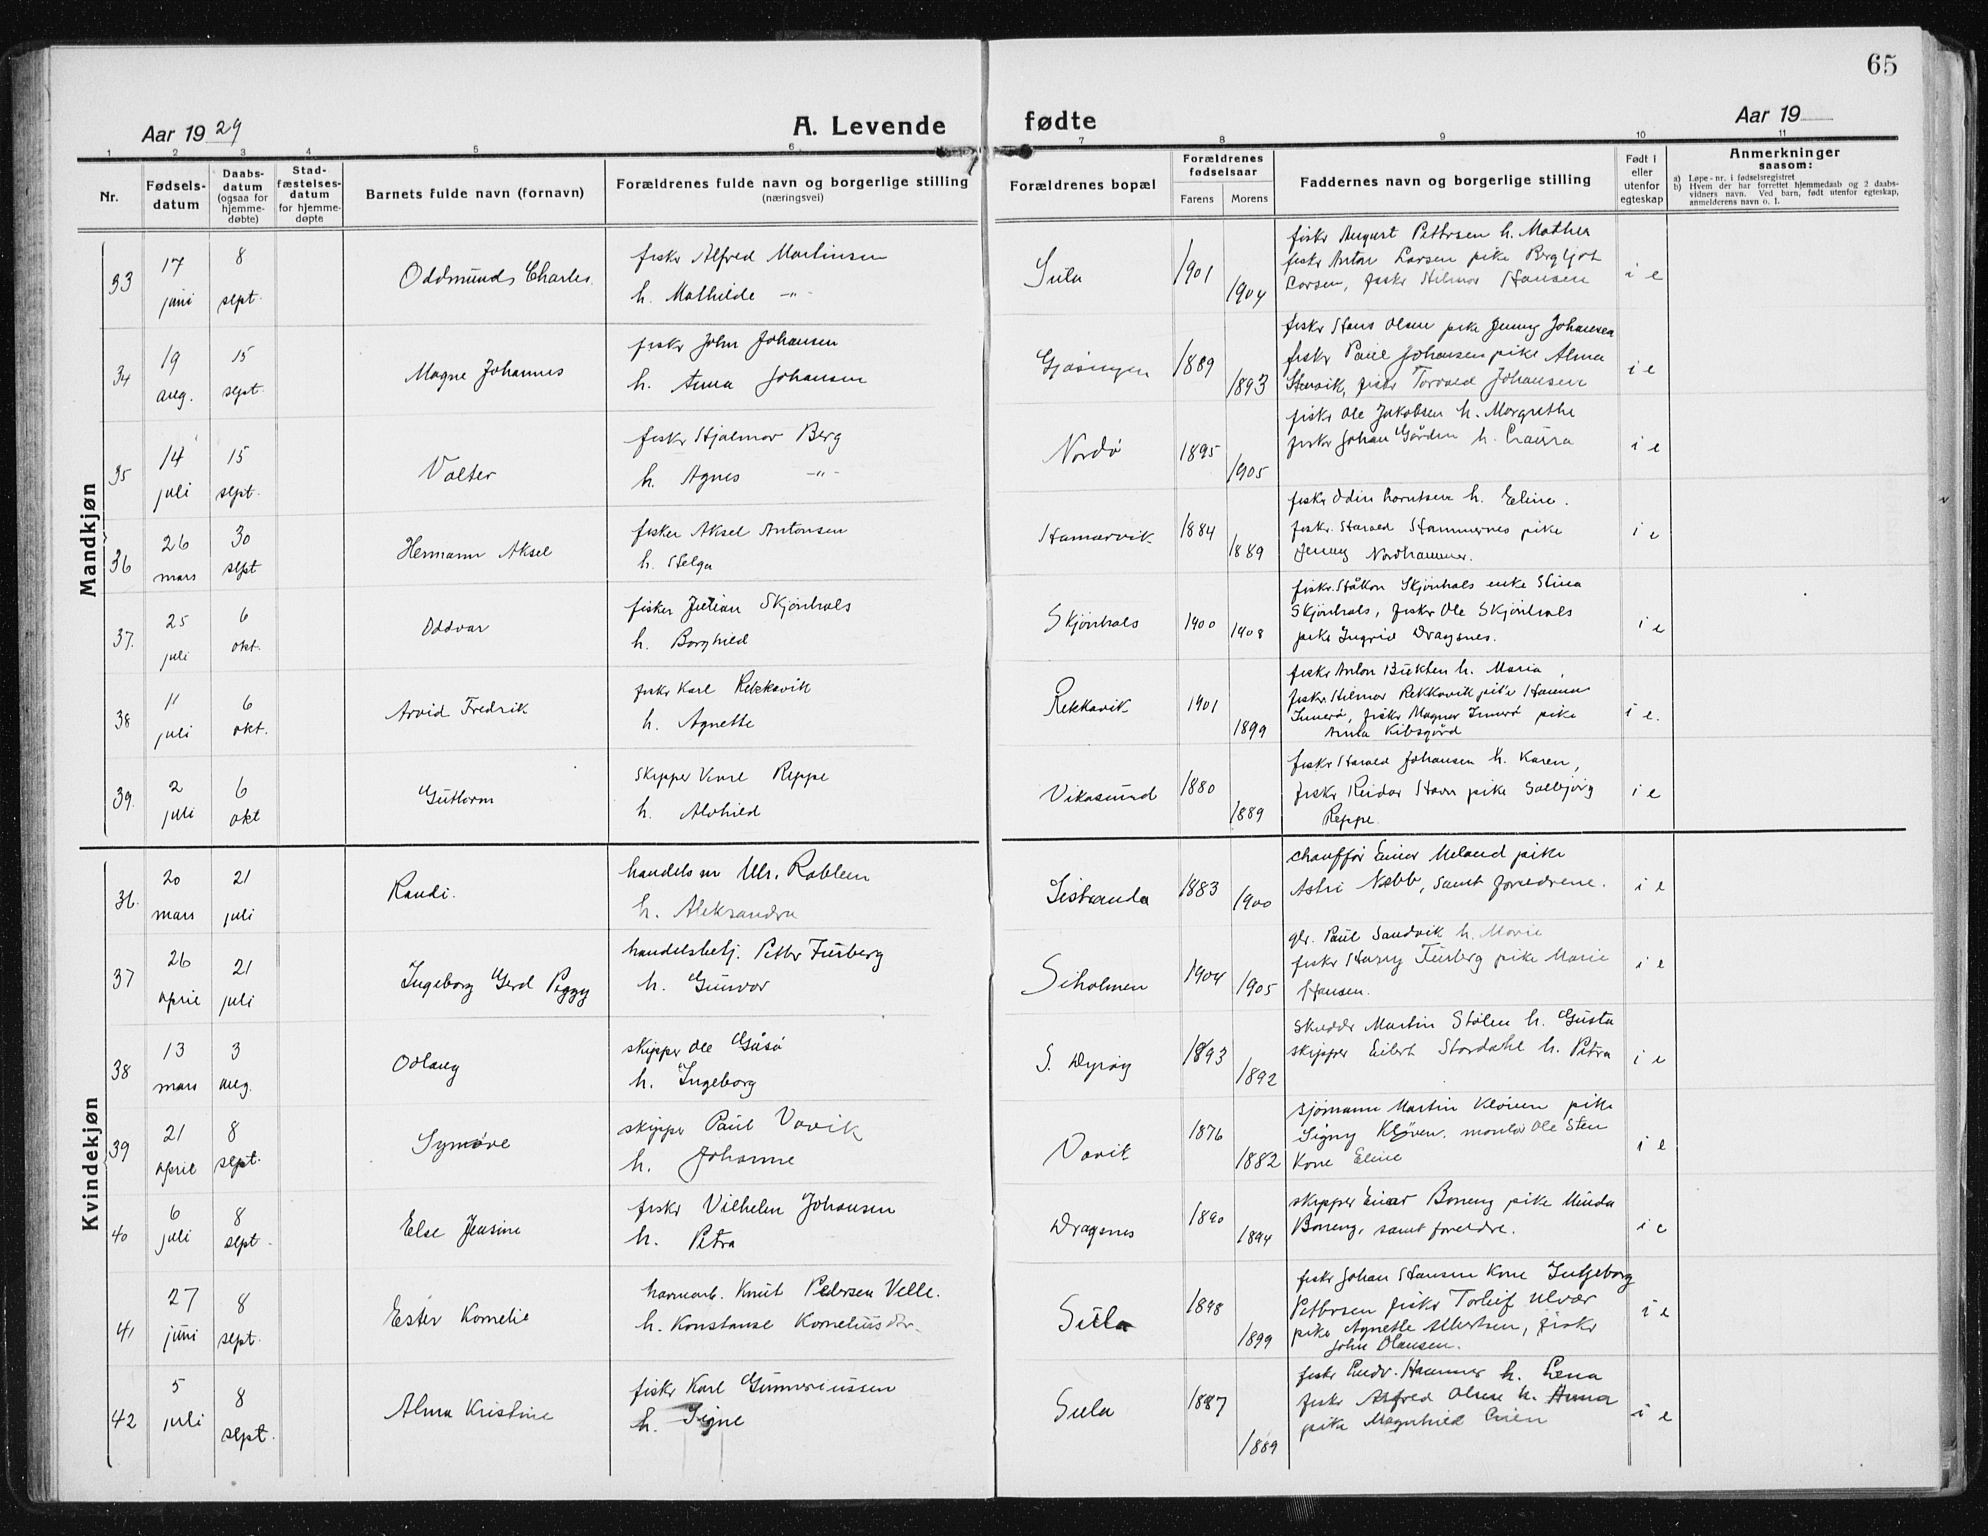 65
Aar 1929
A. Levende fødte
Aar 19
1 2 3 4 5 6 7 8 9 10 11
Nr.
Fødsels-
datum
Daabs-
datum
(ogsaa for
hjemme-
døbte)
Stad-
fæstelses-
datum
for hjemme-
døpte
Barnets fulde navn (fornavn)
Forældrenes fulde navn og borgerlige stilling
(næringsvei)
Forældrenes bopæl
Forældrenes
fødselsaar
Farens Morens
Faddernes navn og borgerlige stilling
Født i
eller
utenfor
egteskap
Anmerkninger
saasom:
a) Løpe-nr. i fødselsregistret
b) Hvem der har forrettet hjemmedaab og 2 daabs-
vidners navn. Ved barn, født utenfor egteskap,
anmelderens navn o. l.
Mandkjøn
33 17 juni 8 sept. Oddmund Charles
fisker Alfred Martinsen
h. Mathilde -"-
Sula 1901 1904
fiskr August Pettersen h. Mathea
fiskr Anton Larsen pike Bergljot
Larsen, fiskr Hilmar Hansen
i e
34 19 aug. 15 sept. Magne Johannes
fiskr John Johansen
h. Anna Johansen
Gjæsingen 1889 1893
fiskr Hans Olsen pike Jenny Johansen
fiskr Paul Johansen pike Alma
Stenvik, fiskr Torvald Johansen
i e
35 14 juli 15 sept. Valter
fiskr Hjalmar Berg
h. Agnes -"-
Nordø 1895 1905
fiskr Ole Jakobsen h. Margrethe
fiskr Johan Gården h. Laura
i e
36 26 mars 30 sept Hermann Aksel
fisker Aksel Antonsen
h. Helga
Hamarvik 1884 1889
fiskr Odin Lorntsen h. Eline.
fiskr. Harald Hammernes pike
Jenny Nordhammer.
i e
37. 25 juli 6 okt. Oddvar
fisker Julian Skjønhals
h. Borghild
Skjønhals 1900 1908
fiskr. Håkon Skjønhals enke Stina
Skjønhals, fiskr Ole Skjønhals
pike Ingrid Dragsnes.
i e
38 11 juli 6 okt. Arvid Fredrik
fiskr Karl Rekkavik
h. Agnette
Rekkavik 1901 1899
fiskr Anton Bukten h. Maria,
fiskr. Hilmar Rekkavik pike Hanna
Innerø, fiskr Magnar Innerø pike
Anna Kibsgård
i e.
39. 2 juli 6 okt Guttorm
skipper Reppe
h. Alvhild
Vikasund 1880 1889
fiskr Harald Johansen h. Karen,
fiskr Reidar Havn pike Solbjørg
Reppe.
i e
Kvindekjøn
36. 20 mars 21 juli Randi.
handelsm Ulr. Rabben
h. Aleksandra
Sistranda 1883 1900
chauffør Einar Meland pike
Astri Næbb, samt foreldrene.
i e
37 26 april 21 juli Ingeborg Gerd Peggy
handelsbetj. Petter Furberg
h. Gunvor
Siholmen 1904 1905
gbr. Paul Sandvik h. Marie
fiskr Harry Furberg pike Marie
Hansen.
i e
38 13 mars 3 aug. Odlaug
skipper Ole Gåsø
h. Ingeborg
S. Dyrøy 1893 1892
skredder Martin Stølen h. Gusta
skipper Eilert Stordahl h. Petra
i e
39 21 april 8 sept. Synnøve
skipper Paul Vavik
h. Johanne
Vavik 1876 1882
sjømann Martin Kløven pike
Signy Kløven. montør Ole Sten
Kone Eline
i e
40 6 juli 8 sept. Else Jensine
fiskr Vilhelm Johansen
h. Petra
Dragsnes 1890 1894
skipper Einar Boneng pike Minda
Boneng, samt foreldre.
i e
41 27 juni 8 sept. Ester Kornelie
havnearb. Knut Pedersen Velle.
h. Konstanse Korneliusdtr.
Sula 1898 1899
fiskr Johan Hansen Kone Ingeborg
Pettersen fiskr Torleif Ulvær
pike Agnette Albertsen, fiskr
John Olausen.
i e
42 5 juli 8 sept. Alma Kristine
fiskr Karl Gunneriussen
h. Signe
Sula 1887 1889
fiskr Ludv. Hammer h. Lena
fiskr Alfred Olsen h. Anna
pike Magnhild Lien
i e